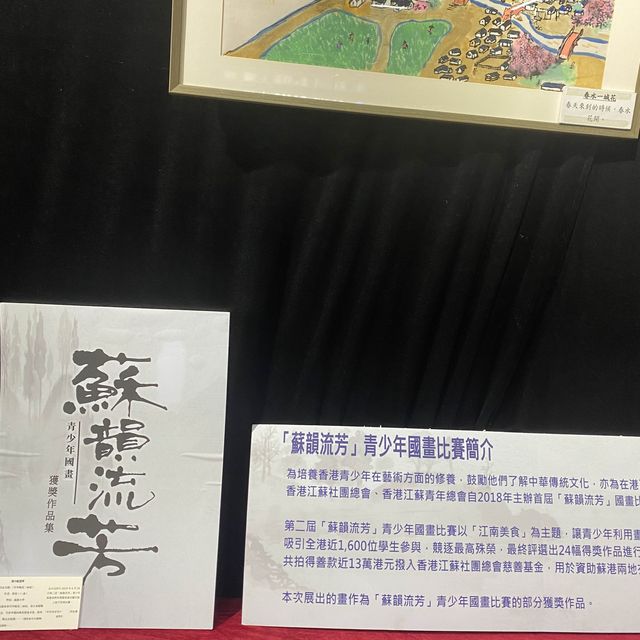 春水一城花
春天來到的時候，春水
花開。
蘇韻流芳
青少年國畫
獲獎作品集
「蘇韻流芳」青少年國畫比賽簡介
為培養香港青少年在藝術方面的修養，鼓勵他們了解中華傳統文化，亦為在港
香港江蘇社團總會、香港江蘇青年總會自2018年主辦首屆「蘇韻流芳」國畫比
第二屆「蘇韻流芳」青少年國畫比賽以「江南美食」為主題，讓青少年利用畫
吸引全港近1,600位學生參與，競逐最高殊榮，最終評選出24幅得獎作品進行
共拍得善款近13萬港元撥入香港江蘇社團總會慈善基金，用於資助蘇港兩地
本次展出的畫作為「蘇韻流芳」青少年國畫比賽的部分獲獎作品。